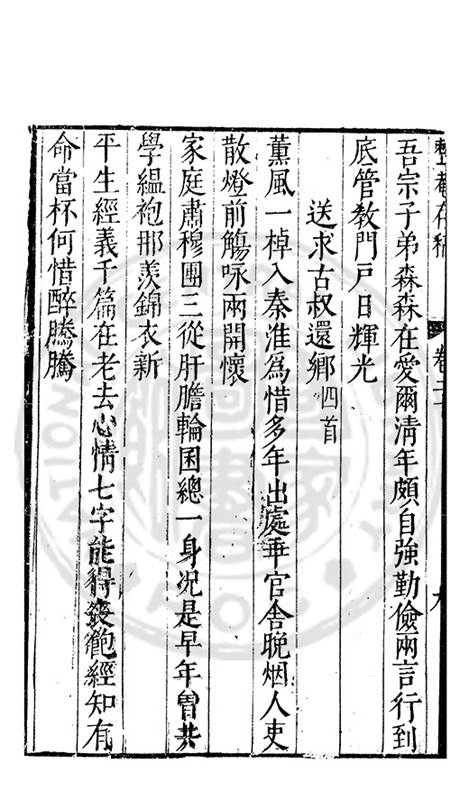 整菴存稿 卷二十 九
吾宗子弟森森在愛爾清年頗自強勤儉兩言行到
底管教門戶日輝光
送求古叔還鄉四首
薰風一棹入秦淮為惜多年出處乖官舍晚烟人吏
散燈前觴咏兩開懷
家庭肅穆團三從肝膽輪囷總一身况是早年曾共
學縕袍那羨錦衣新
平生經義千篇在老去心情七字能得喪飽經知有
命當杯何惜醉騰騰